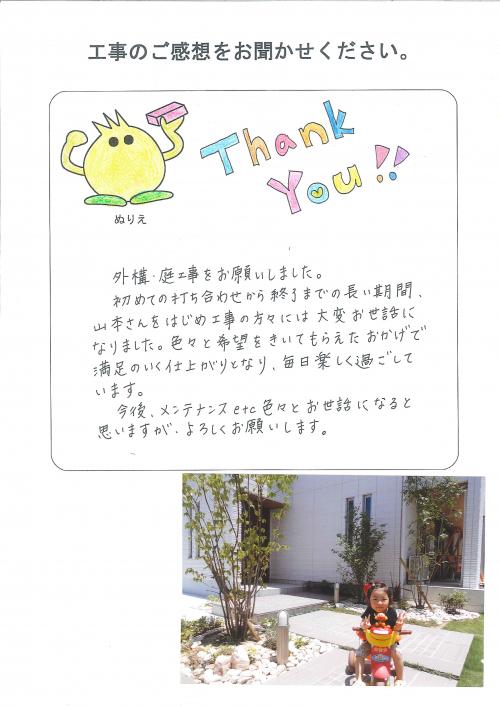 工事のご感想をお聞かせください。
Thank
You!!
ぬりえ
外構・庭工事をお願いしました。
初めての打ち合わせから終了までの長い期間、
山本さんをはじめ工事の方々には大変お世話に
なりました。色々と希望をきいてもらえたおかげで
満足のいく仕上がりとなり、毎日楽しく過ごして
います。
今後、メンテナンスetc色々とお世話になると
思いますが、よろしくお願いします。